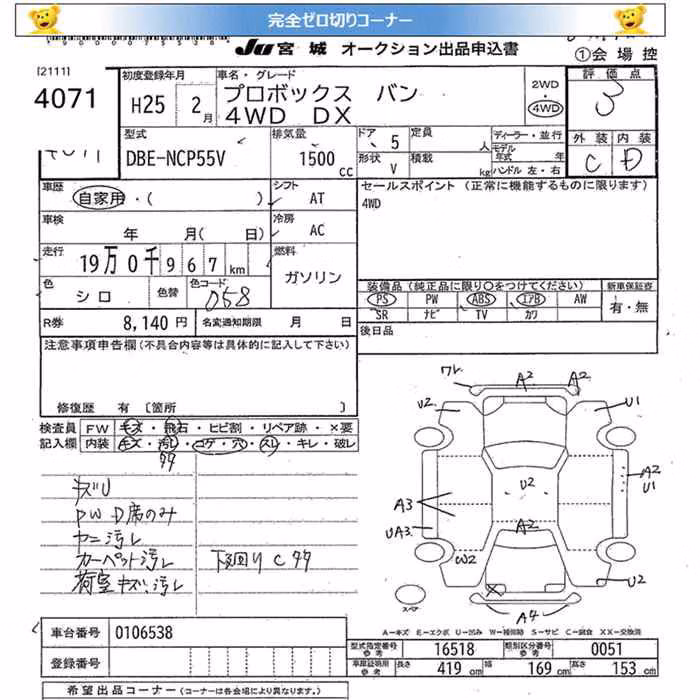 完全ゼロ切りコーナー
JU 宮城 オークション出品申込書
①会場控
[2111]
4071
初度登録年月
H25 2月
車名・グレード
プロボックス バン
4WD DX
2WD
・
4WD
評価点
3
外装 内装
C D
型式
DBE-NCP55V
排気量
1500 cc
ドア 5
形状 V
定員 人
積載 kg
ディーラー・並行
モデル年式 年
ハンドル 左・右
車歴
自家用・( )
シフト
AT
セールスポイント (正常に機能するものに限ります)
4WD
車検
年 月( 日)
冷房
AC
走行
19万0千967km
燃料
ガソリン
色
シロ
色替
色コード
058
装備品(純正品に限り○をつけてください)
PS PW ABS エアB AW
SR ナビ TV カワ
新車保証書
有・無
R券 8,140円
名変通知期限 月 日
後日品
注意事項申告欄(不具合内容等は具体的に記入して下さい)
修復歴 有 〔箇所 〕
検査員
記入欄
FW キズ・飛石・ヒビ割・リペア跡・×要
内装 キズ・汚レ・コゲ・穴・スレ・キレ・破レ
キズU
PW D席のみ
ヤニ汚レ
カーペット汚レ
下廻りCササ
荷室キズ汚レ
ワレ
A2
A2
U2
U1
A2
U1
U2
A3
UA3
A2
W2
U2
A4
スペア
A-キズ E-エクボ U-凹み W-補修跡 S-サビ C-腐食 XX-交換済
車台番号 0106538
登録番号
型式指定番号 参考 16518
類別区分番号 参考 0051
車庫証明用 参考
長さ 419 cm
幅 169 cm
高さ 153 cm
希望出品コーナー(コーナーは各会場により異なります。)